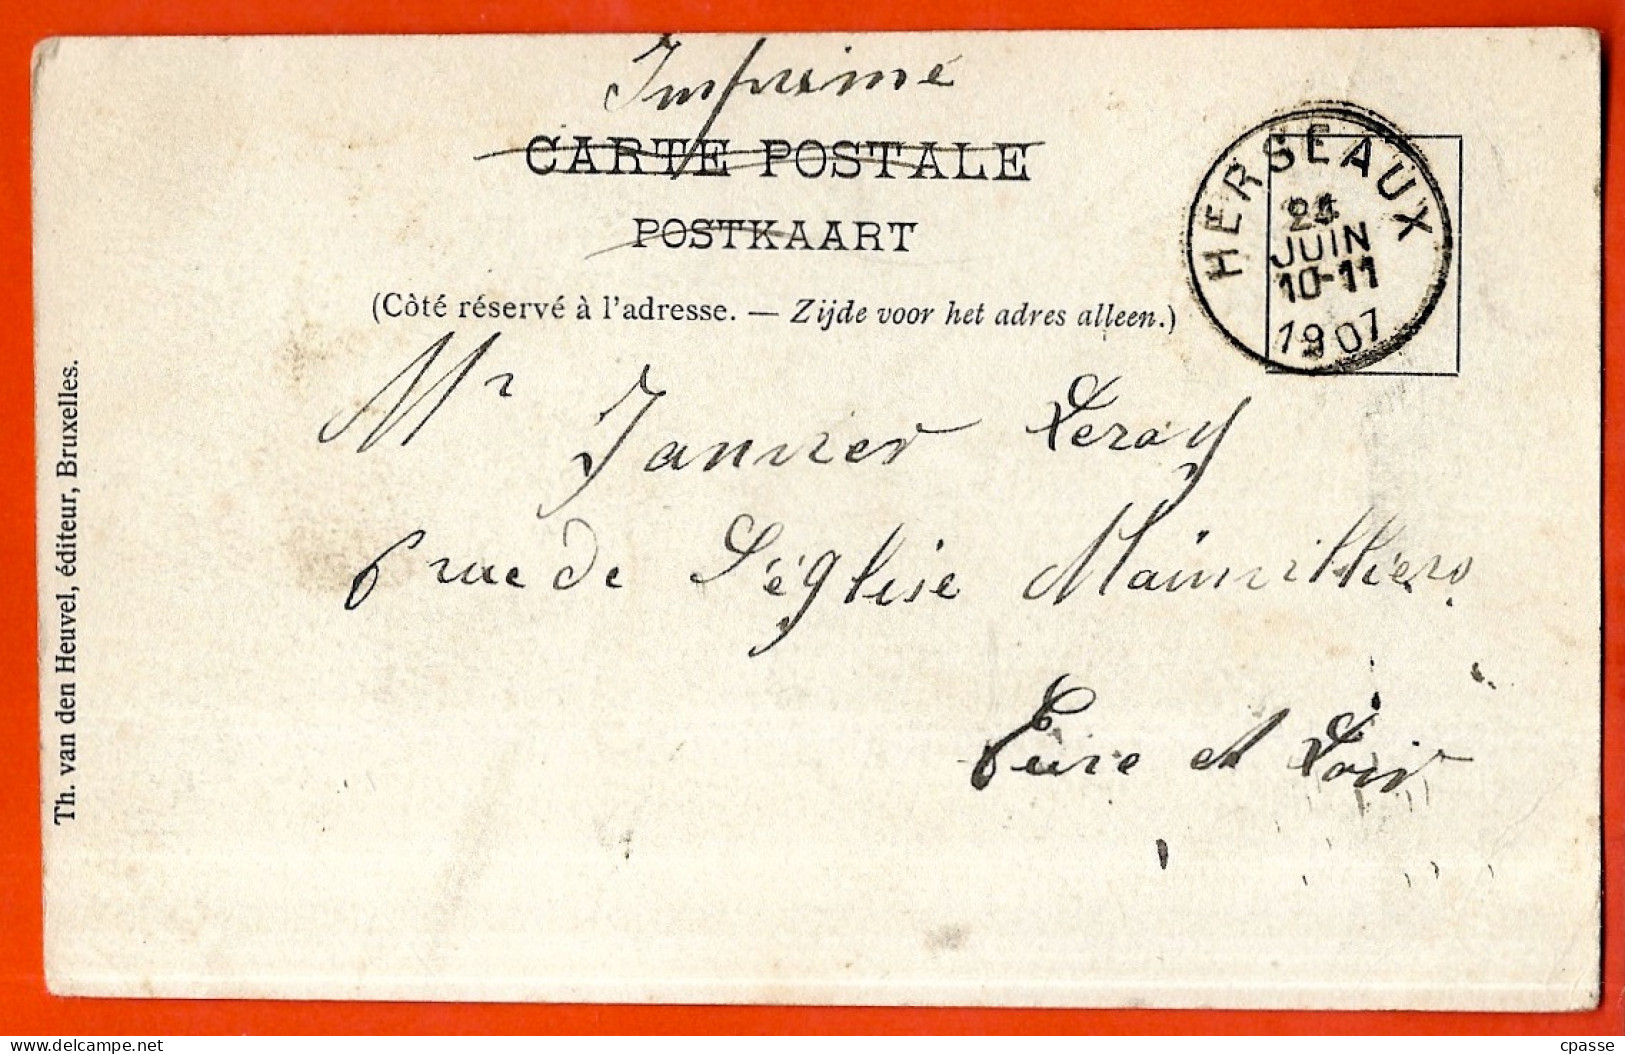 Imprimé
CARTE POSTALE
POSTKAART
(Côté réservé à l'adresse. — Zijde voor het adres alleen.)
HERSEAUX
24
JUIN
10-11
1907
Mr Janvier Leray
6 rue de L'église Mainvilliers
Eure et Loir
Th. van den Heuvel, éditeur, Bruxelles.
cpasse